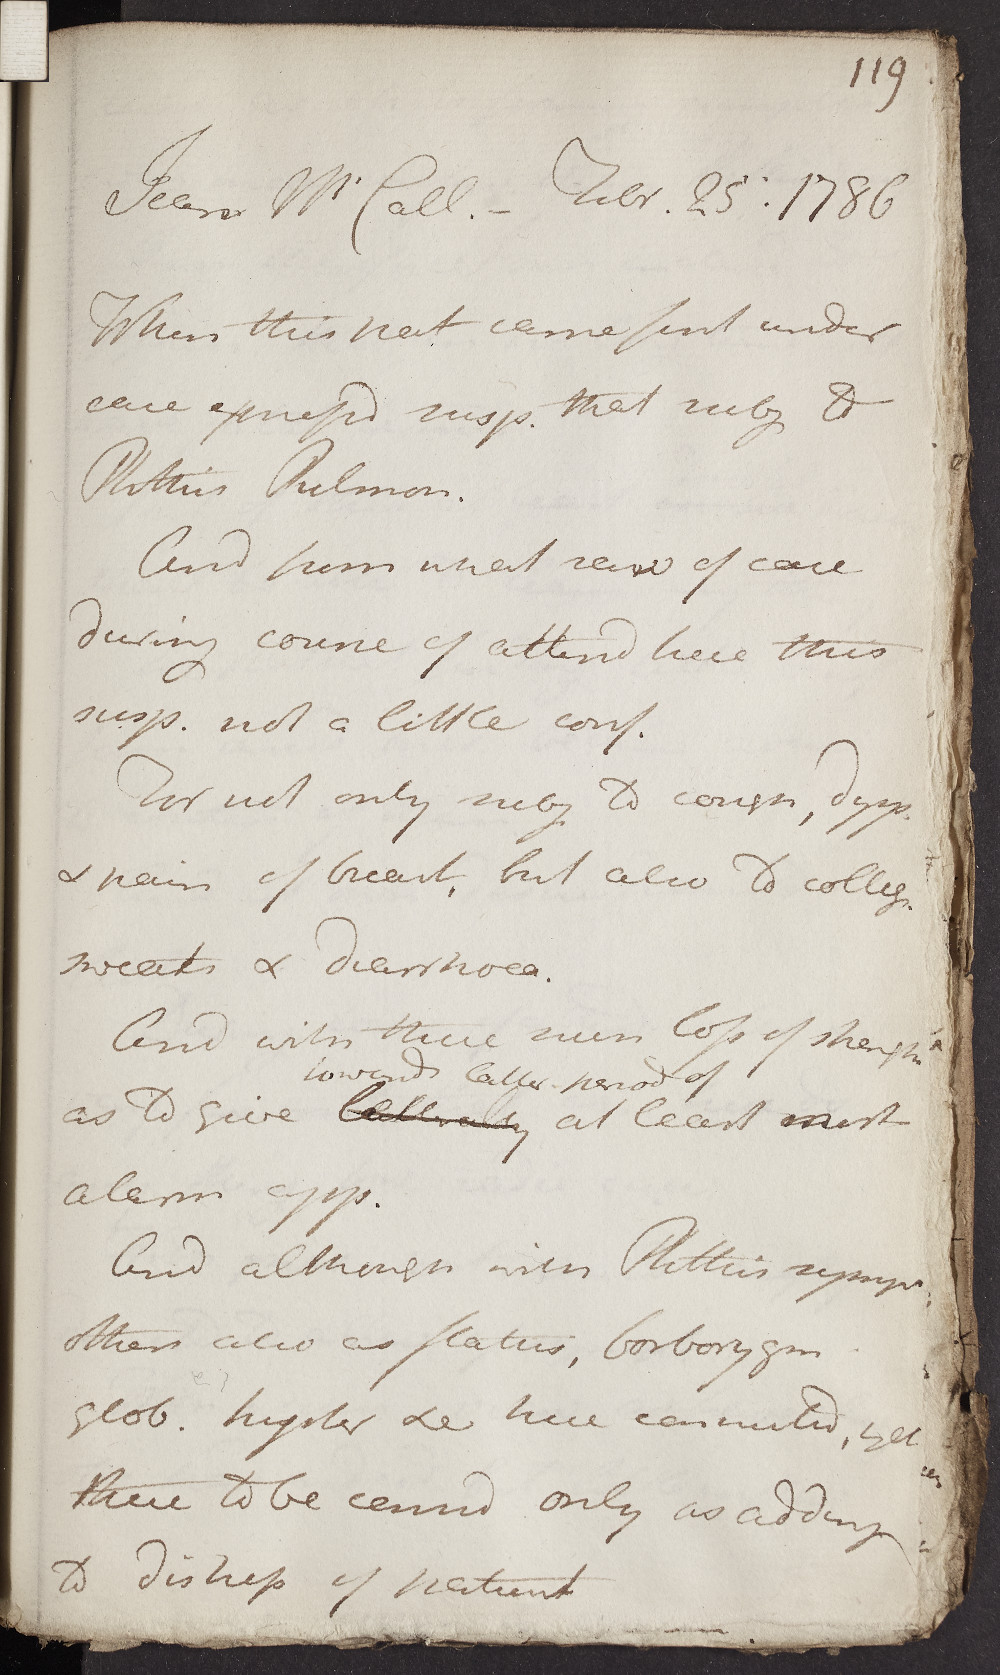 119
Jean Mc Call. - Febr. 25: 1786
When this pat came first under
care express'd susp. that subj to
Phthisis Pulmon.
And from what seen of case
during course of attend here this
susp. not a little conf.
For not only subj to cough, dysp.
& pain of breast, but also to colliq.
sweats & diarrhoea.
And with these such loss of strength
towards latter period of
as to give at least most
alarm app.
And although with Phthisis symp.
others also as flatus, borborygm
glob. hyster &c here connected, yet
these to be consid only as adding
to distress of patient